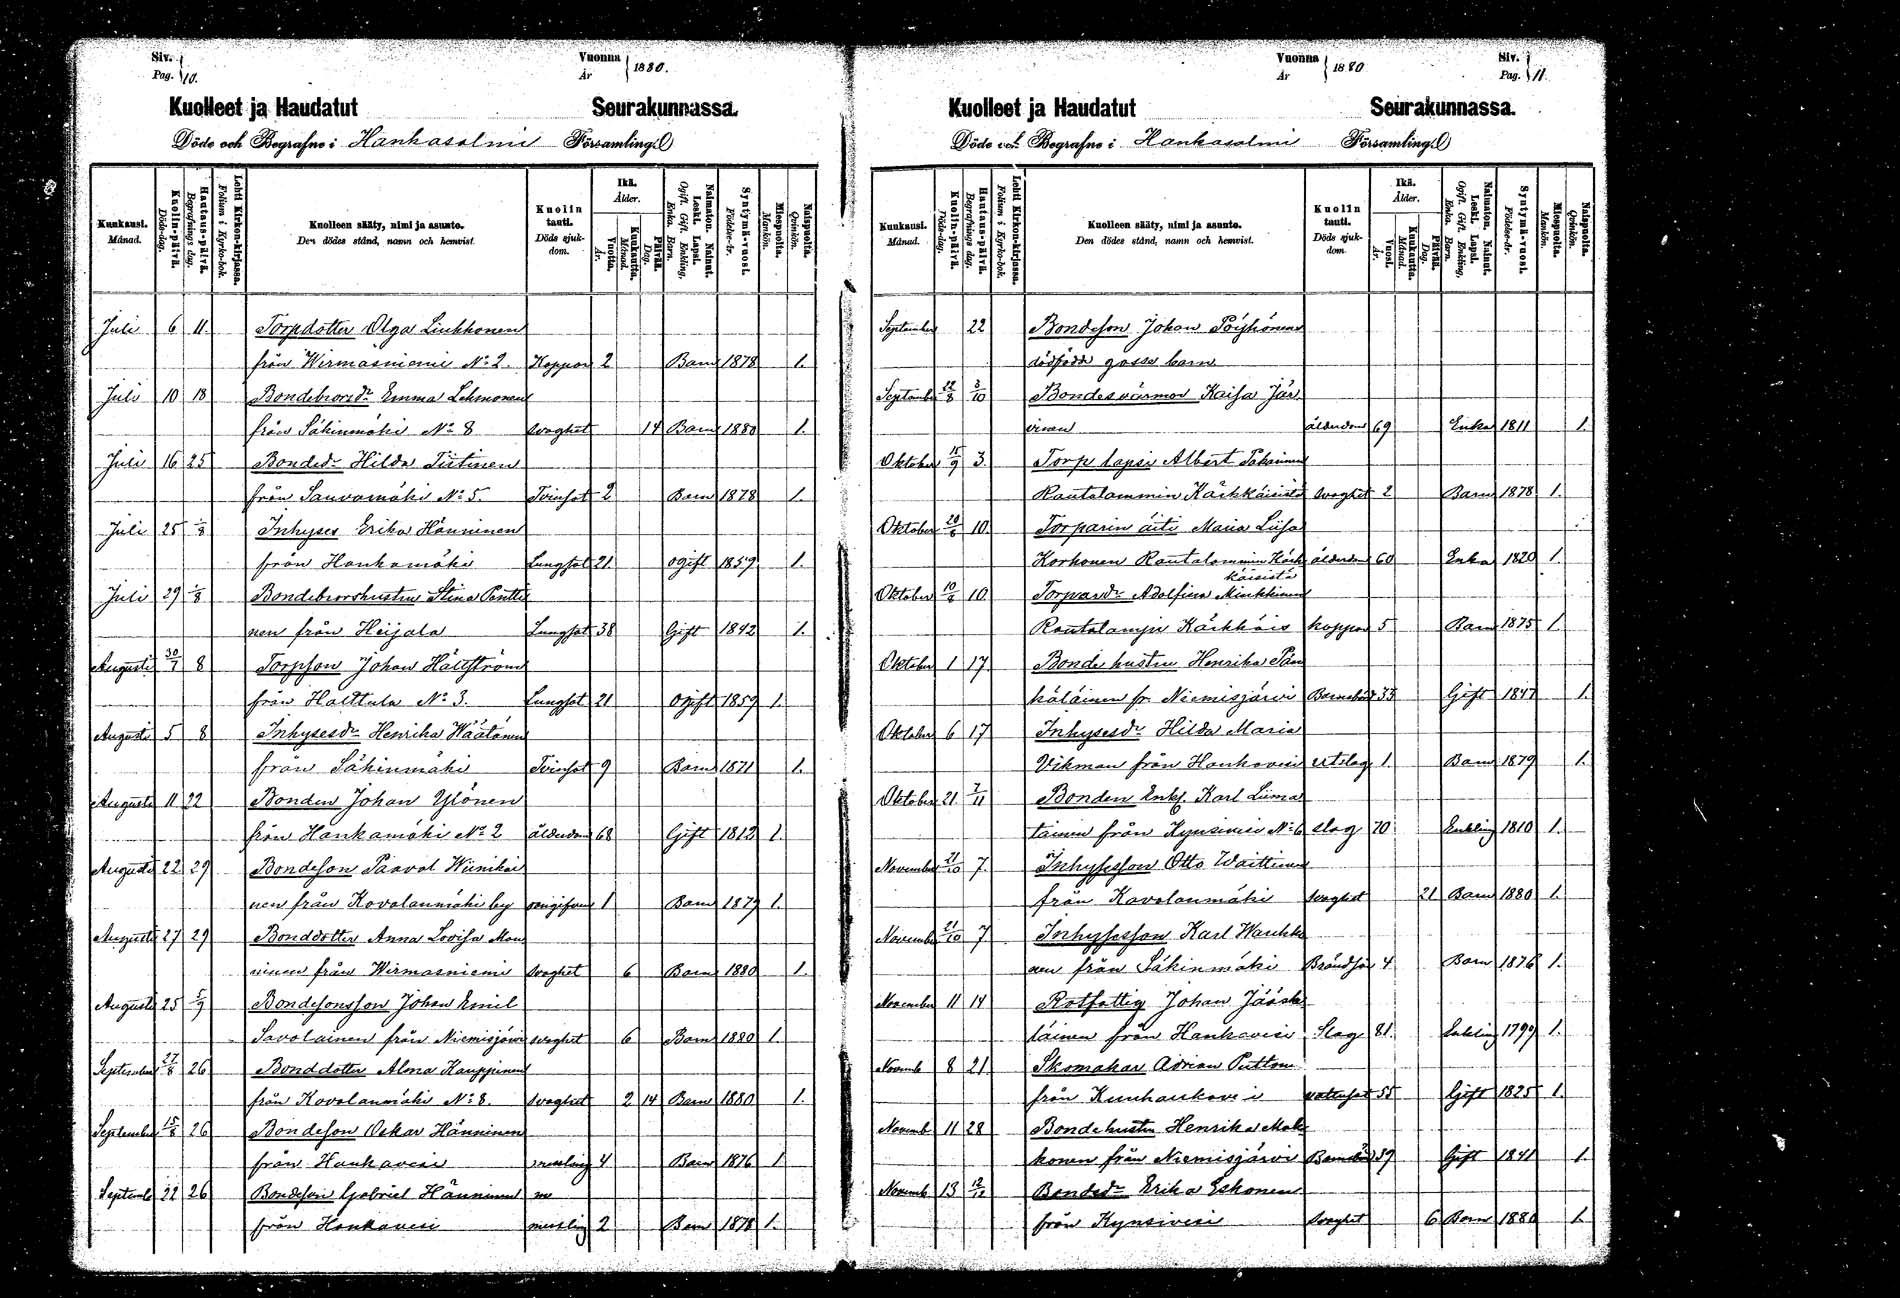 Siv.
Pag. 10.
Vuonna
År 1880.
Kuolleet ja Haudatut Seurakunnassa.
Döde och Begrafne i Hankasalmi Församling.
Kuukausi. Månad.
Kuolin-päivä. Döds-dag.
Hautaus-päivä. Begrafnings dag.
Lehti Kirkon-kirjassa. Folium i Kyrko-bok.
Kuolleen sääty, nimi ja asunto. Den dödes stånd, namn och hemvist.
Kuolin tauti. Döds sjukdom.
Ikä. Ålder.
Vuotta. År.
Kuukautta. Månad.
Päivää. Dag.
Naimaton. Nainut. Leski. Lapsi. Ogift. Gift. Enkling. Enka. Barn.
Syntymä-vuosi. Födelse-år.
Miespuolta. Mankön.
Naispuolta. Qvinkön.
Juli 6 11 Torpdotter Olga Liukkonen
från Wirmasniemi No 2. Koppor 2 Barn 1878 1.
Juli 10 18 Bondebrorsdr Emma Lehmonen
från Säkinmäki No 8 svaghet 14 Barn 1880 1.
Juli 16 25 Bondedr Hilda Tiitinen
från Sauvamäki No 5. Tvinsot 2 Barn 1878 1.
Juli 25 1/8 Inhyses Erika Hänninen
från Hankamäki Lungsot 21 ogift 1859 1.
Juli 29 1/8 Bondebrorshustru Stina Pentti
nen från Heijala Lungsot 38 Gift 1842 1.
Augusti 30/7 8 Torpson Johan Hällström
från Halttula No 3. Lungsot 21 Ogift 1859 1.
Augusti 5 8 Inhysesdr Henrika Väätänen
från Säkinmäki Tvinsot 9 Barn 1871 1.
Augusti 11 22 Bonden Johan Ylönen
från Hankamäki No 2 ålderdom 68 Gift 1812 1.
Augusti 22 29 Bondeson Paaval Wiinikai
nen från Kovalanmäki by 1 Barn 1879 1.
Augusti 27 29 Bonddotter Anna Lovisa Mon
ninen från Wirmasniemi svaghet 6 Barn 1880 1.
Augusti 25 5/9 Bondesonsson Johan Emil
Savolainen från Niemisjärvi svaghet 6 Barn 1880 1.
September 27/8 26 Bonddotter Alma Kauppinen
från Kovalanmäki No 8. svaghet 2 14 Barn 1880 1.
September 15/8 26 Bondeson Oskar Hänninen
från Hankavesi messling 4 Barn 1876 1
Septemb 22 26 Bondeson Gabriel Hänninen
från Hankavesi messling 2 Barn 1878 1.
Vuonna
År 1880
Siv.
Pag. 11.
Kuolleet ja Haudatut Seurakunnassa.
Döde och Begrafne i Hankasalmi Församling.
Kuukausi. Månad.
Kuolin-päivä. Döds-dag.
Hautaus-päivä. Begrafnings dag.
Lehti Kirkon-kirjassa. Folium i Kyrko-bok.
Kuolleen sääty, nimi ja asunto. Den dödes stånd, namn och hemvist.
Kuolin tauti. Döds sjukdom.
Ikä. Ålder.
Vuosi. År.
Kuukautta. Månad.
Päivää. Dag.
Naimaton, Nainut. Leski. Lapsi. Ogift. Gift. Enkling, Enka. Barn.
Syntymä-vuosi. Födelse-år.
Miespuolta. Mankön.
Naispuolta. Qvinkön.
September 22 Bondeson Johan Pöyhönens
dödfödda gosse barn
September 22/8 3/10 Bondesvärmor Kaisa Jär
vinen ålderdom 69 Enka 1811 1.
Oktober 15/9 3. Torp lapsi Albert
Rautalammin Kärkkäisistä svaghet 2 Barn 1878 1.
Oktober 20/8 10. Torparin äiti Maria Liisa
Korhonen Rautalammin Kärk ålderdom 60 Enka 1820 1.
käisistä
Oktober 10/8 10. Torpardr Adolfina Minkkinen
Rautalampi Kärkkäis koppor 5 Barn 1875 1.
Oktober 1 17 Bonde hustru Henrika Pän
käläinen fr. Niemisjärvi Barnsbörd 33 Gift 1847 1.
Oktober 6 17 Inhysesdr Hilda Maria
Vikman från Hankavesi utslag 1. Barn 1879 1.
Oktober 21 7/11 Bonden Enkl. Karl Liima
tainen från Kynsivesi No 6 slag 70 Enkling 1810 1.
November 21/10 7. Inhysesson Otto Waittinen
från Kovalanmäki svaghet 21 Barn 1880 1.
November 21/10 7 Inhysesson Karl Warikko
nen från Säkinmäki 4 Barn 1876 1.
November 11 14 Rotfattig Johan Jääske
läinen från Hankavesi Slag 81. Enkling 1799 1.
Novemb 8 21 Skomakar Adrian Puttonen
från Kuuhankavesi vattusot 55 Gift 1825 1.
Novemb 11 28 Bondehustru Henrika Mak
konen från Niemisjärvi Barnsbörd 39 Gift 1841 1.
Novemb 13 12/12 Bondedr Erika Eskonen
från Kynsivesi svaghet 6 Barn 1880 1.